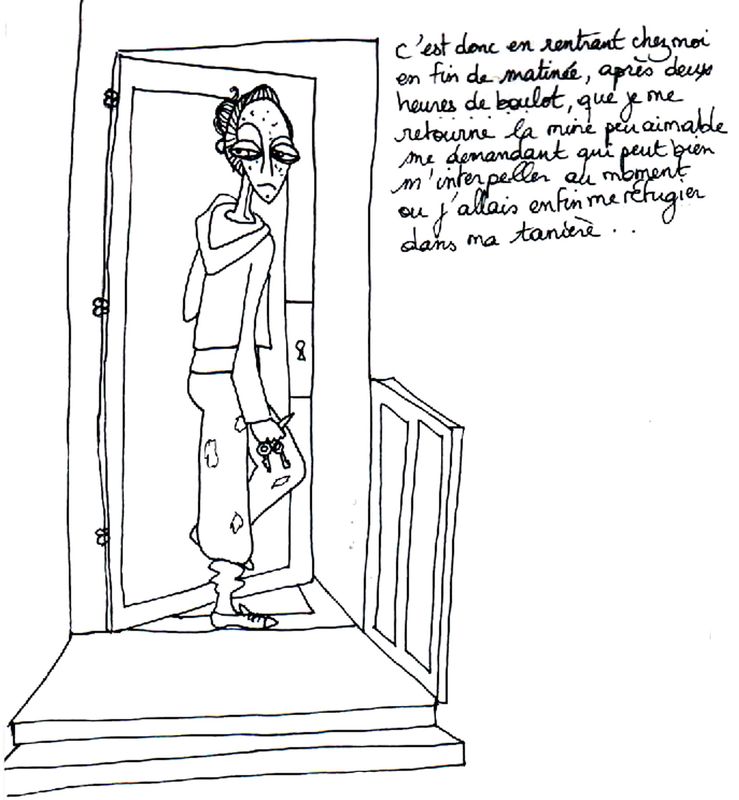 c'est donc en rentrant chez moi
en fin de matinée, après deux
heures de boulot, que je me
retourne la mine peu aimable
me demandant qui peut bien
m'interpeller au moment
ou j'allais enfin me réfugier
dans ma tanière . .